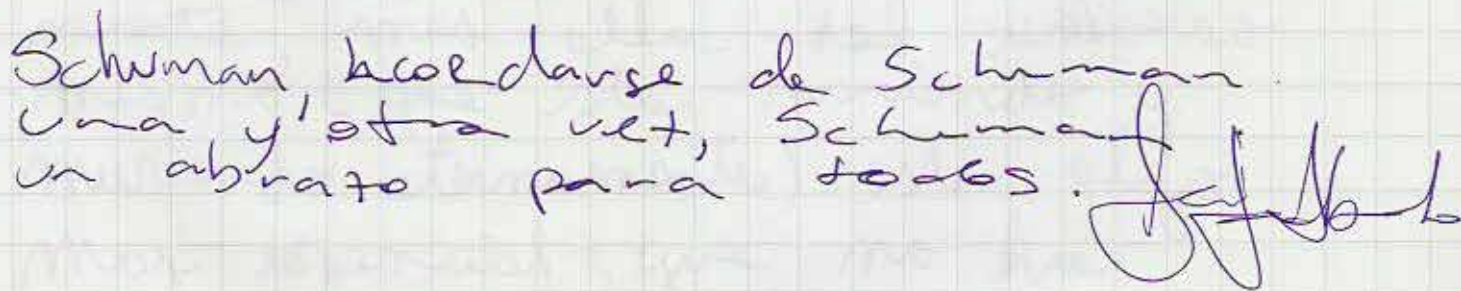 Schuman, acordarse de Schuman.
una y otra vez, Schuman
un abrazo para todos.